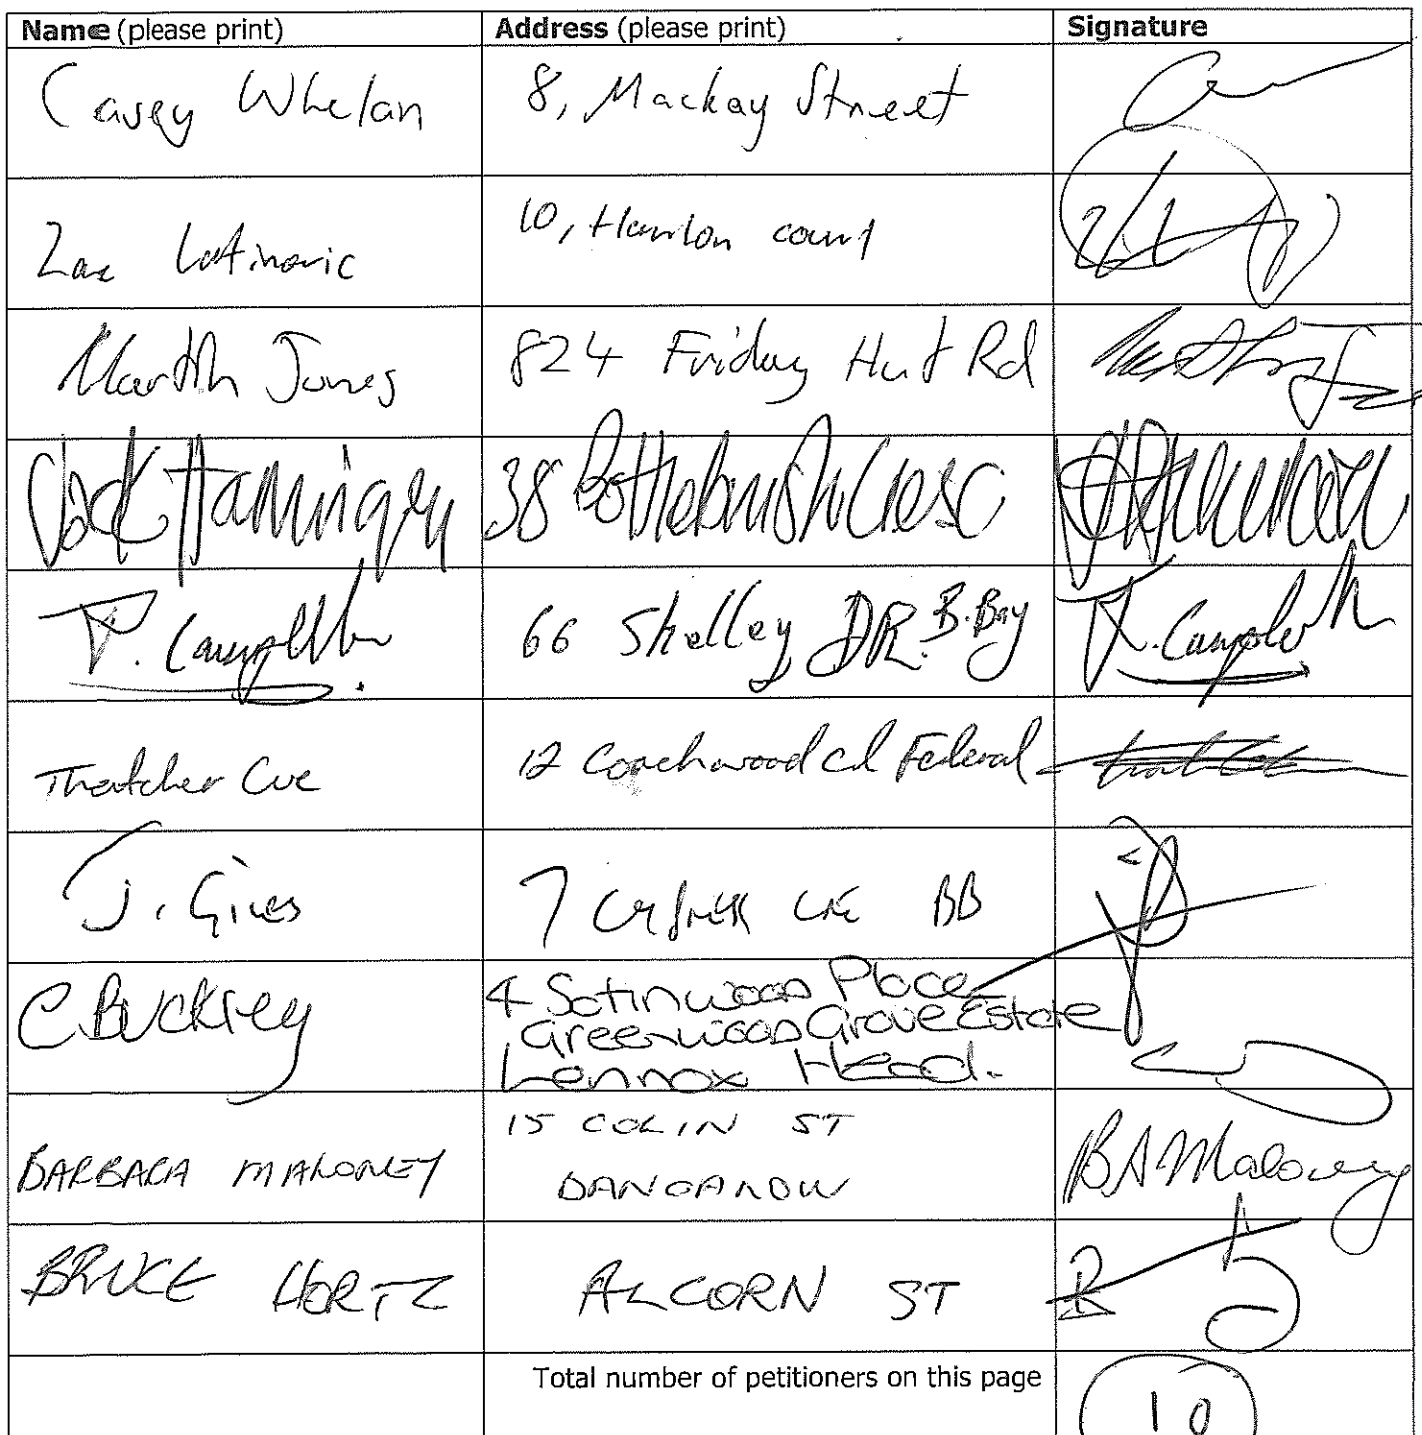 Name (please print) Address (please print) Signature
Casey Whelan 8, Mackay Street
Zac Latinovic 10, Hanlon court
Martin Jones 824 Friday Hut Rd
Jock Hammingen 38 Bottlebrush Cresc
T. Campbell 66 Shelley DR. B. Bay T. Campbell
Thatcher Cve 12 Coachwood ct Federal
J. Gives 7 BB
C. Buckley 4 Satinwood Place
Greenwood Grove Estate
Lennox Head.
15 COLIN ST
BARBARA MALONEY BANGALOW BA Maloney
BRUCE HERTZ ALCORN ST
Total number of petitioners on this page
10